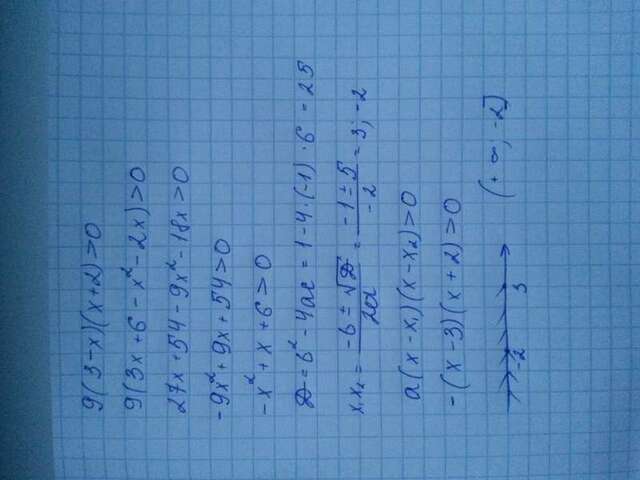 9(3-x)(x+2)>0
9(3x+6-x²-2x)>0
27x+54-9x²-18x>0
-9x²+9x+54>0
-x²+x+6>0
D=b²-4ac=1-4·(-1)·6=25
x₁x₂=(-b±√D)/2a=(-1±5)/-2=3;-2
a(x-x₁)(x-x₂)>0
-(x-3)(x+2)>0
-2 3 (+∞;-2]